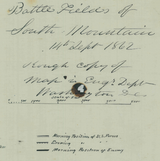 Battle Fields of
South Mountain
14th Sept 1862
Rough copy of
Map in Eng. Dept
Washington D.C.
Morning Position of
Evening " "
Morning Position of Enemy